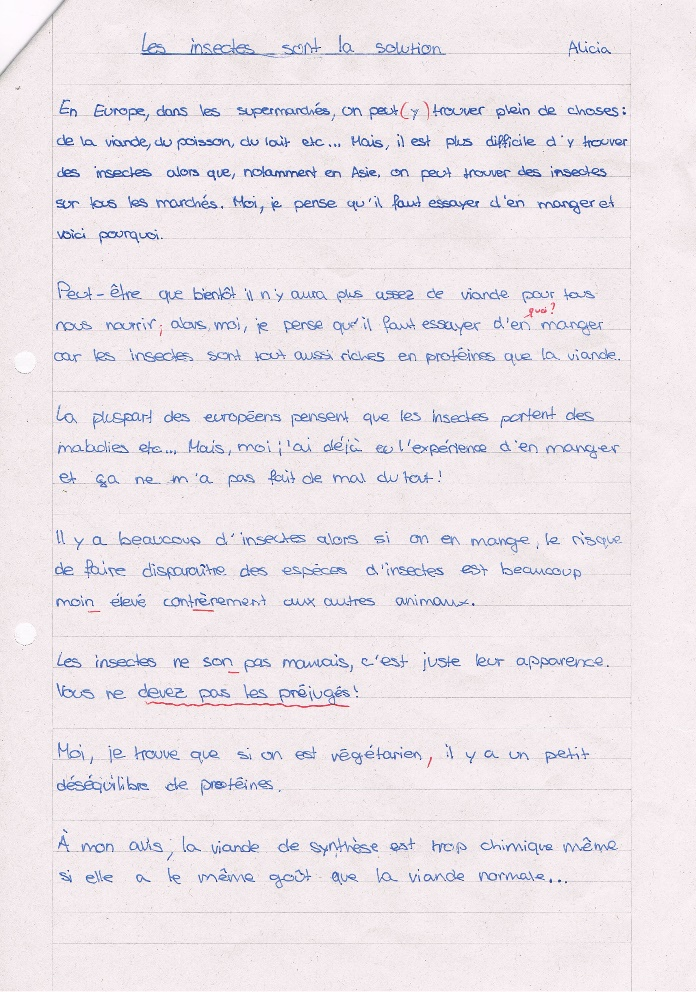 Les insectes sont la solution Alicia
En Europe, dans les supermarchés, on peut (y) trouver plein de choses:
de la viande, du poisson, du lait etc... Mais, il est plus difficile d'y trouver
des insectes alors que, notamment en Asie, on peut trouver des insectes
sur tous les marchés. Moi, je pense qu'il faut essayer d'en manger et
voici pourquoi.
Peut-être que bientôt il n'y aura plus assez de viande pour tous
quoi?
nous nourrir; alors, moi, je pense qu'il faut essayer d'en manger
car les insectes sont tout aussi riches en protéines que la viande.
La pluspart des européens pensent que les insectes portent des
maladies etc... Mais, moi j'ai déjà eu l'expérience d'en manger
et ça ne m'a pas fait de mal du tout!
Il y a beaucoup d'insectes alors si on en mange, le risque
de faire disparaître des espèces d'insectes est beaucoup
moin élevé contrèrement aux autres animaux.
Les insectes ne son pas mauvais, c'est juste leur apparence.
Vous ne devez pas les préjugés!
Moi, je trouve que si on est végétarien, il y a un petit
déséquilibre de protéines.
À mon avis, la viande de synthèse est trop chimique même
si elle a le même goût que la viande normale...